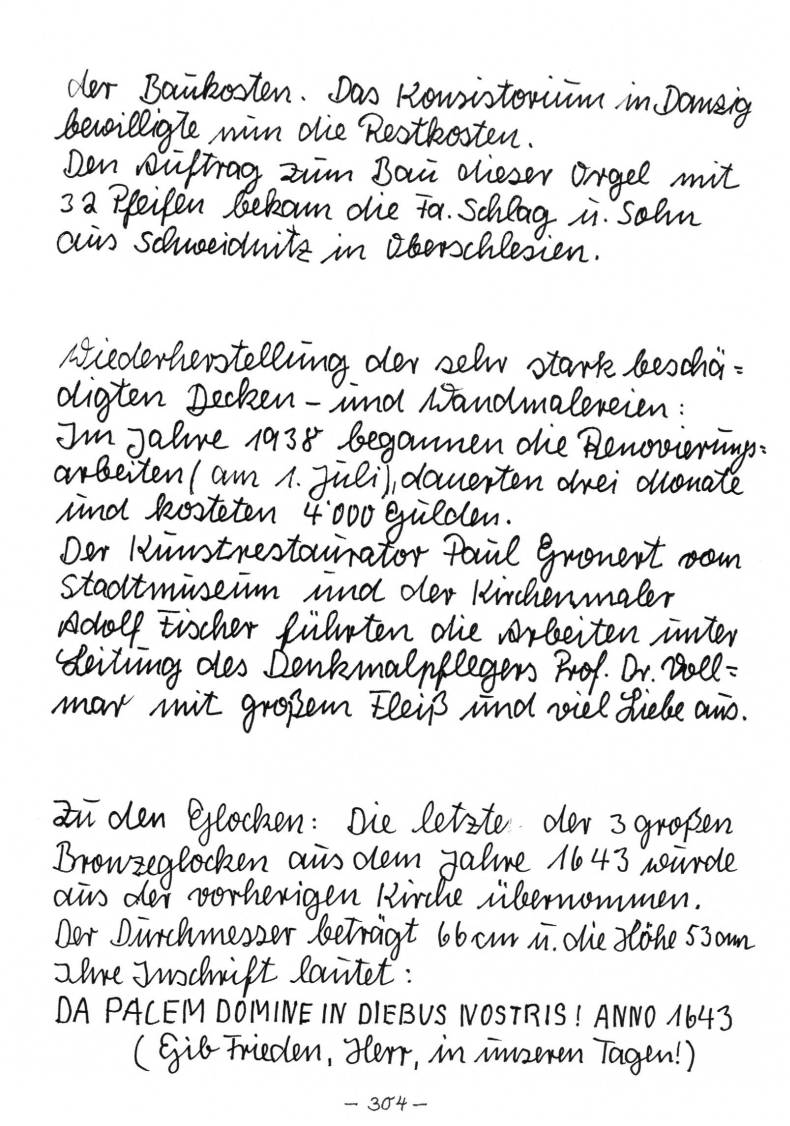 der Baukosten. Das Konsistorium in Danzig
bewilligte nun die Restkosten.
Den Auftrag zum Bau dieser Orgel mit
32 Pfeifen bekam die Fa. Schlag u. Sohn
aus Schweidnitz in Oberschlesien.
Wiederherstellung der sehr stark beschä=
digten Decken – und Wandmalereien:
Im Jahre 1938 begannen die Renovierungs=
arbeiten (am 1. Juli), dauerten drei Monate
und kosteten 4'000 Gulden.
Der Kunstrestaurator Paul Gronert vom
Stadtmuseum und der Kirchenmaler
Adolf Fischer führten die Arbeiten unter
Leitung des Denkmalpflegers Prof. Dr. Voll=
mar mit großem Fleiß und viel Liebe aus.
Zu den Glocken: Die letzte der 3 großen
Bronzeglocken aus dem Jahre 1643 wurde
aus der vorherigen Kirche übernommen.
Der Durchmesser beträgt 66 cm u. die Höhe 53 cm
Ihre Inschrift lautet:
DA PACEM DOMINE IN DIEBUS NOSTRIS! ANNO 1643
(Gib Frieden, Herr, in unseren Tagen!)
– 304 –